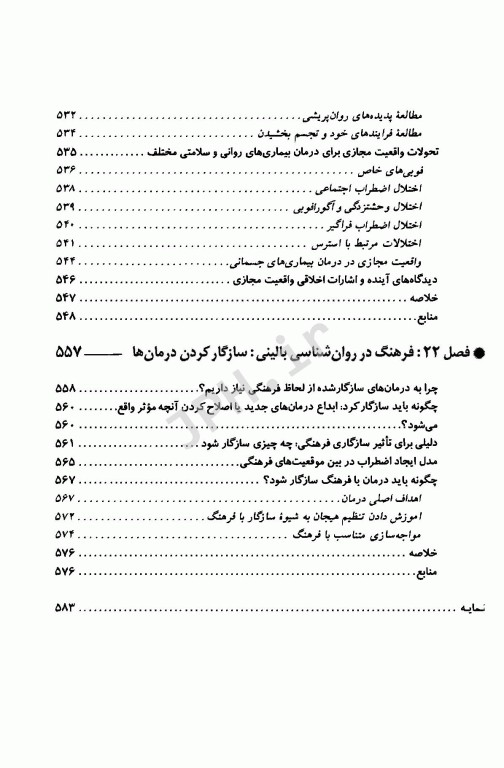 مطالعهٔ پدیده‌های روان‌پریشی ..................................... ۵۳۲
مطالعهٔ فرایندهای خود و تجسم بخشیدن ......................... ۵۳۴
تحولات واقعیت مجازی برای درمان بیماری‌های روانی و سلامتی مختلف ............. ۵۳۵
فوبی‌های خاص ............................................. ۵۳۶
اختلال اضطراب اجتماعی ....................................... ۵۳۸
اختلال وحشتزدگی و آگورافوبی ................................... ۵۳۹
اختلال اضطراب فراگیر ......................................... ۵۴۰
اختلالات مرتبط با استرس ...................................... ۵۴۱
واقعیت مجازی در درمان بیماری‌های جسمانی ......................... ۵۴۴
دیدگاه‌های آینده و اشارات اخلاقی واقعیت مجازی ............................... ۵۴۶
خلاصه ....................................................... ۵۴۷
منابع ........................................................ ۵۴۸
● فصل ۲۲: فرهنگ در روان‌شناسی بالینی: سازگار کردن درمان‌ها ــــــ ۵۵۷
چرا به درمان‌های سازگارشده از لحاظ فرهنگی نیاز داریم؟ ........................ ۵۵۸
چگونه باید سازگار کرد: ابداع درمان‌های جدید یا اصلاح کردن آنچه مؤثر واقع ........ ۵۶۰
می‌شود؟ ..................................................... ۵۶۰
دلیلی برای تأثیر سازگاری فرهنگی: چه چیزی سازگار شود ........................ ۵۶۱
مدل ایجاد اضطراب در بین موقعیت‌های فرهنگی .............................. ۵۶۵
چگونه باید درمان با فرهنگ سازگار شود؟ .................................. ۵۶۷
اهداف اصلی درمان ........................................... ۵۶۷
آموزش دادن تنظیم هیجان به شیوهٔ سازگار با فرهنگ ..................... ۵۷۲
مواجه‌سازی متناسب با فرهنگ .................................. ۵۷۴
خلاصه ....................................................... ۵۷۶
منابع ........................................................ ۵۷۶
نمایه ............................................................... ۵۸۳
JPH.ir